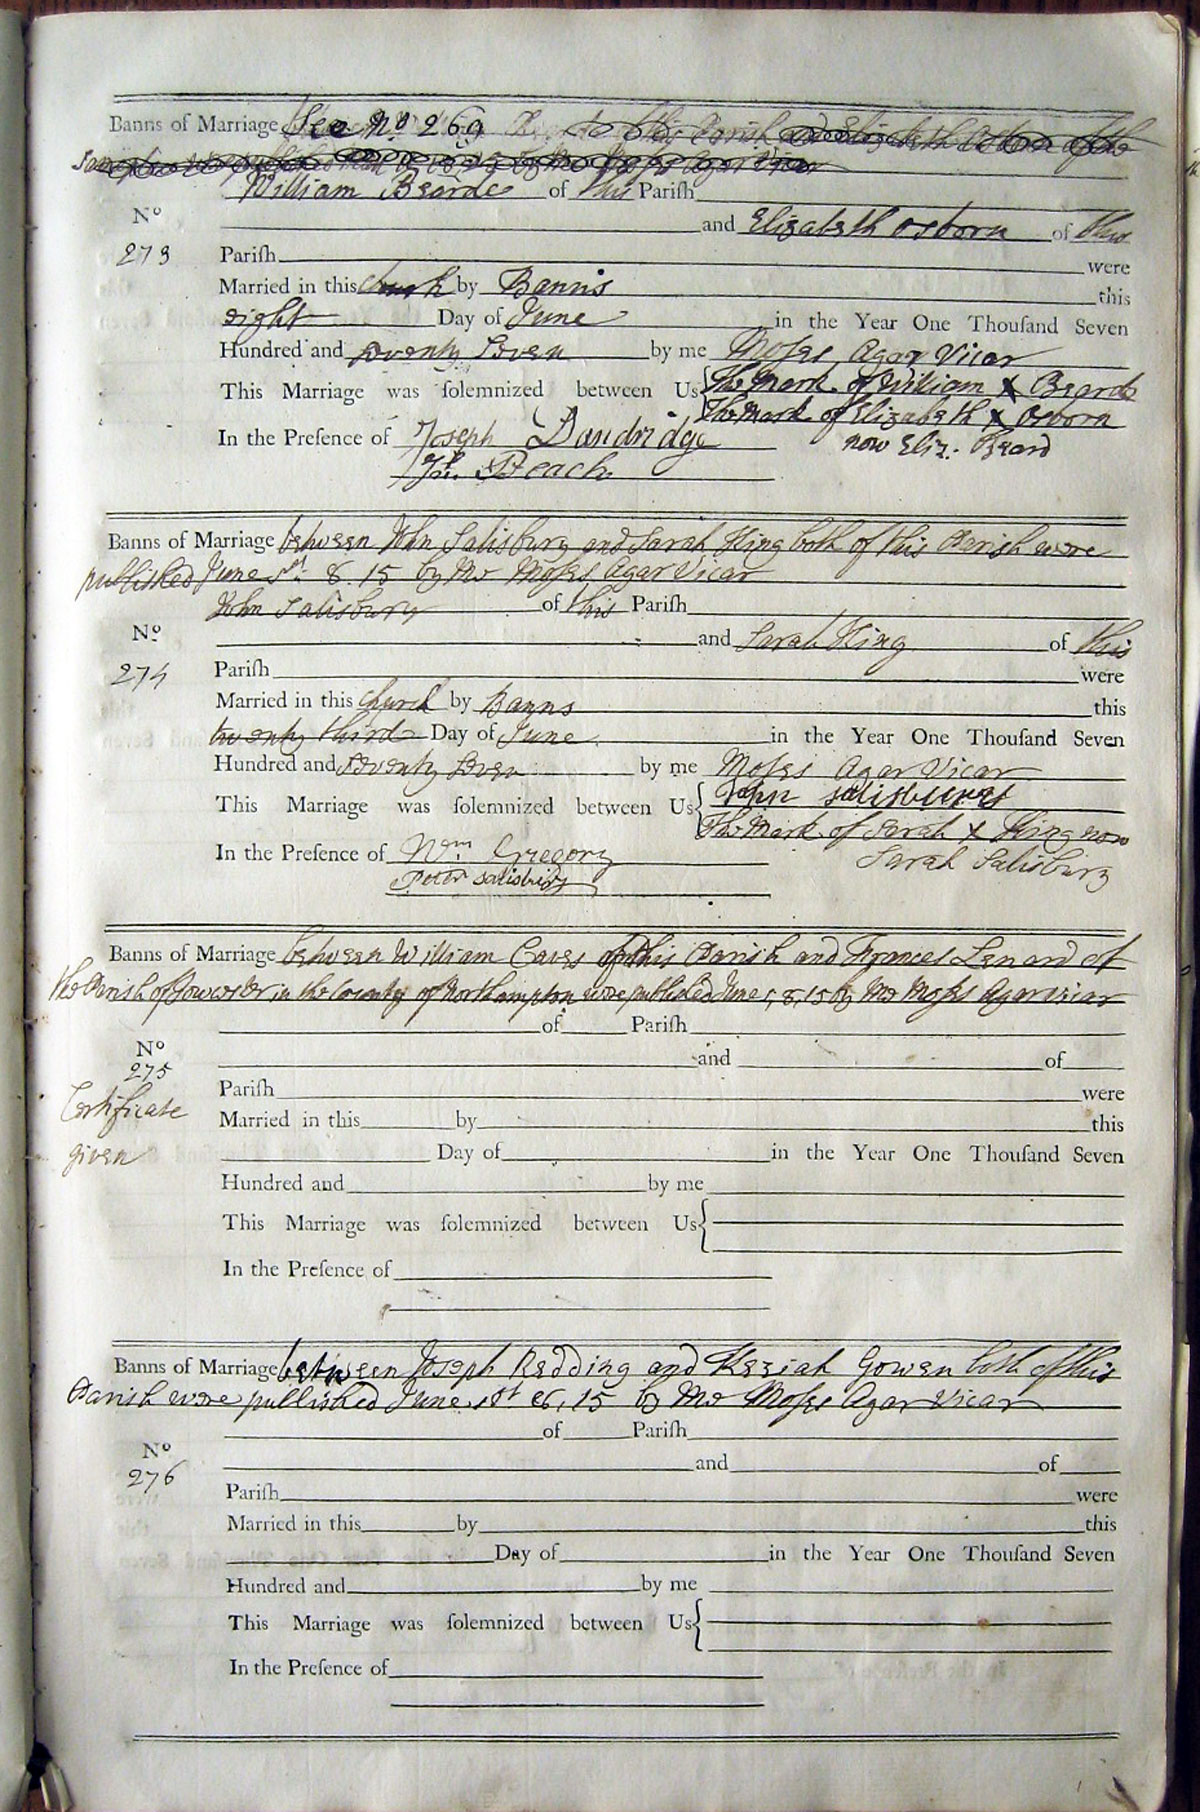 Banns of Marriage See No 269 this Parish and Elizabeth Osborn of the
William Bearde of this Parish
No
and Elizabeth Osborn of this
273
Pariſh were
Married in this Church by Banns this
eight Day of June in the Year One Thouſand Seven
Hundred and Seventy Seven by me Moſes Agar Vicar
This Marriage was ſolemnized between Us The Mark of William X Bearde
The Mark of Elizabeth X Osborn
now Eliz. Beard
In the Preſence of Joseph Dandridge
Beach
Banns of Marriage between John Salisbury and Sarah King both of this Parish were
published June 1st 8. 15 by Me Moſes Agar Vicar
John Salisbury of this Pariſh
No
and Sarah King of this
274
Pariſh were
Married in this Church by Banns this
twenty third Day of June in the Year One Thouſand Seven
Hundred and Seventy Seven by me Moſes Agar Vicar
This Marriage was ſolemnized between Us John Salisbury
The Mark of Sarah X King now
Sarah Salisbury
In the Preſence of Wm Gregory
Peter Salisbury
Banns of Marriage between William Caves of this Parish and Frances Lenard of
the Parish of Towcester in the County of Northampton were published June 1, 8, 15 by Me Moſes Agar Vicar
of Pariſh
No
and of
275
Pariſh were
Certificate
Married in this by this
given
Day of in the Year One Thouſand Seven
Hundred and by me
This Marriage was ſolemnized between Us
In the Preſence of
Banns of Marriage between Joseph Redding and Keziah Gowen both of this
Parish were published June 1st 8, 15 by Me Moſes Agar Vicar
of Pariſh
No
and of
276
Pariſh were
Married in this by this
Day of in the Year One Thouſand Seven
Hundred and by me
This Marriage was ſolemnized between Us
In the Preſence of